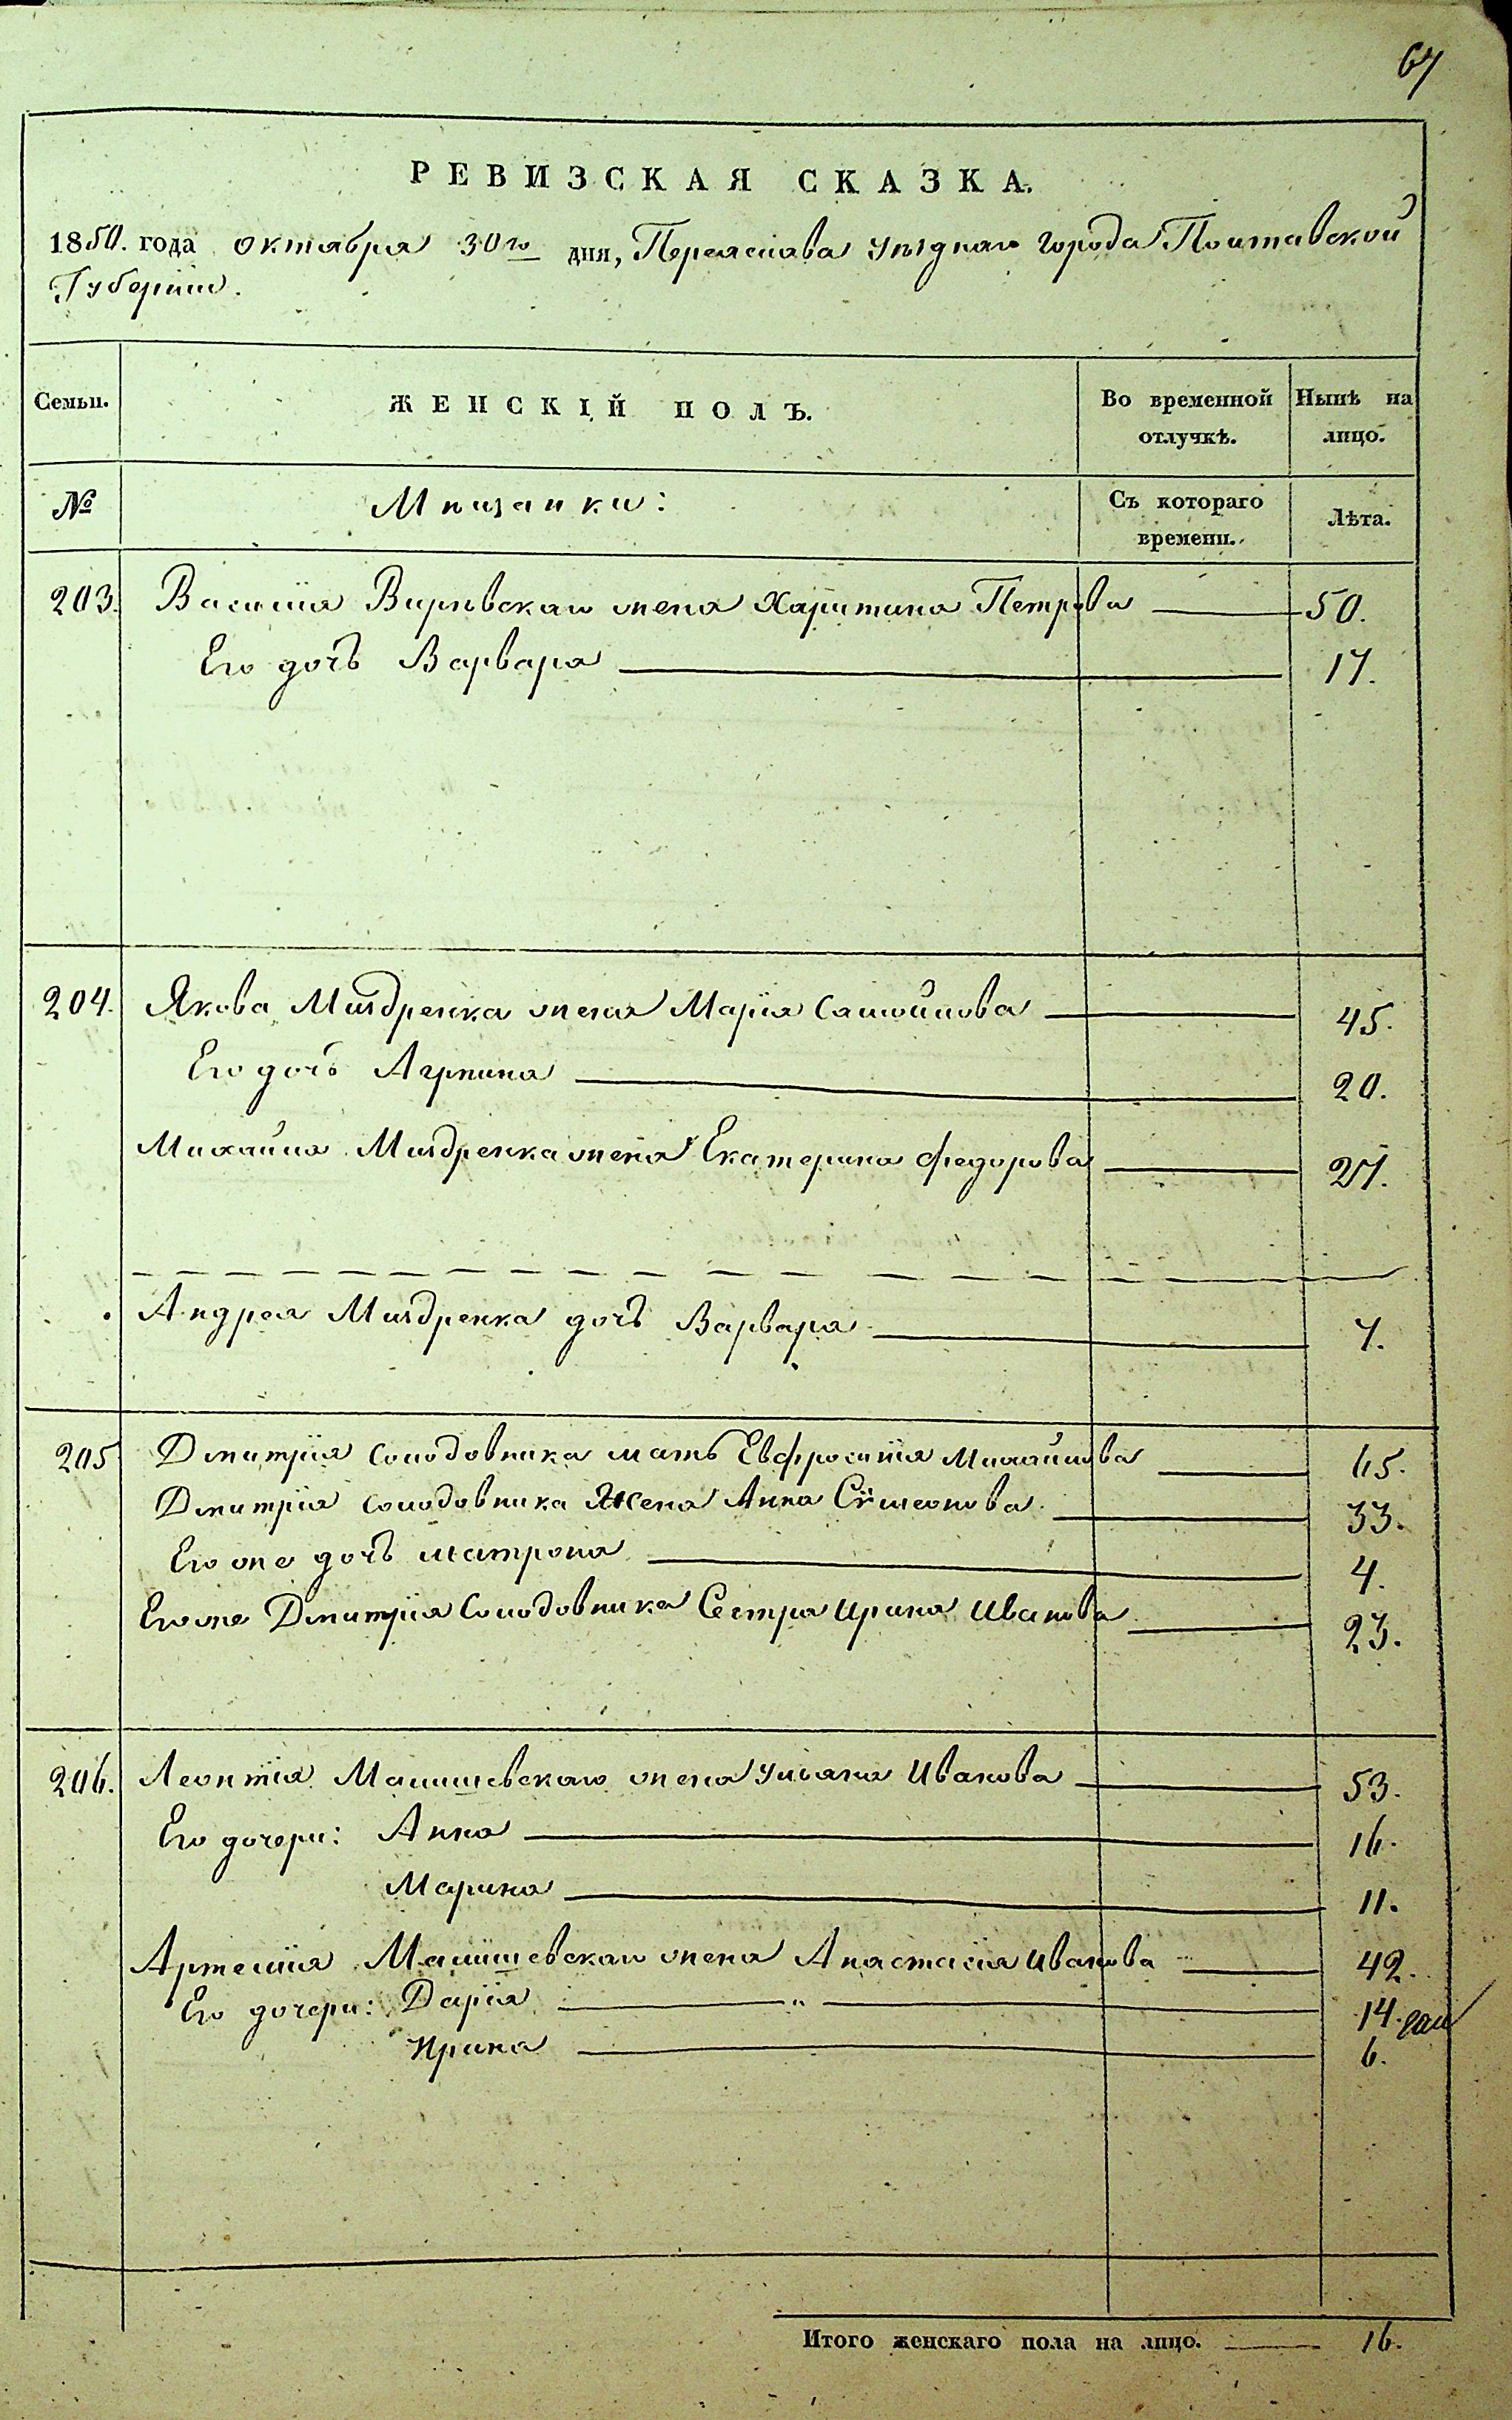 67
РЕВИЗСКАЯ СКАЗКА.
1850. года октября 30го дня, Переяслава уѣзднаго города Полтавской
Губерніи.
Семьи.
ЖЕНСКІЙ ПОЛЪ.
Во временной отлучкѣ.
Нынѣ на лицо.
№
Мѣщанки:
Съ котораго времени.
Лѣта.
203. Василія Вирѣвскаго жена Харитина Петрова — 50.
Его дочь Варвара — 17.
204. Якова Миздренка жена Марія Самойлова — 45.
Его дочь Агрпина — 20.
Михайла Миздренка жена Екатерина Федорова — 27.
Андрея Миздренка дочь Варвара — 7.
205 Дмитрія Солодовника мать Евфросинія Михайлова — 65.
Дмитрія Солодовника Жена Анна Сѵмеонова — 33.
Его же дочь Матрона — 4.
Его же Дмитрія Солодовника Сестра Ирина Иванова — 23.
206. Леонтія Малишевскаго жена Ульяна Иванова — 53.
Его дочери: Анна — 16.
Марина — 11.
Артемія Малишевскаго жена Анастасія Иванова — 42.
Его дочери: Дарія — " — 14.
Ирина — 6.
Итого женскаго пола на лицо. — 16.